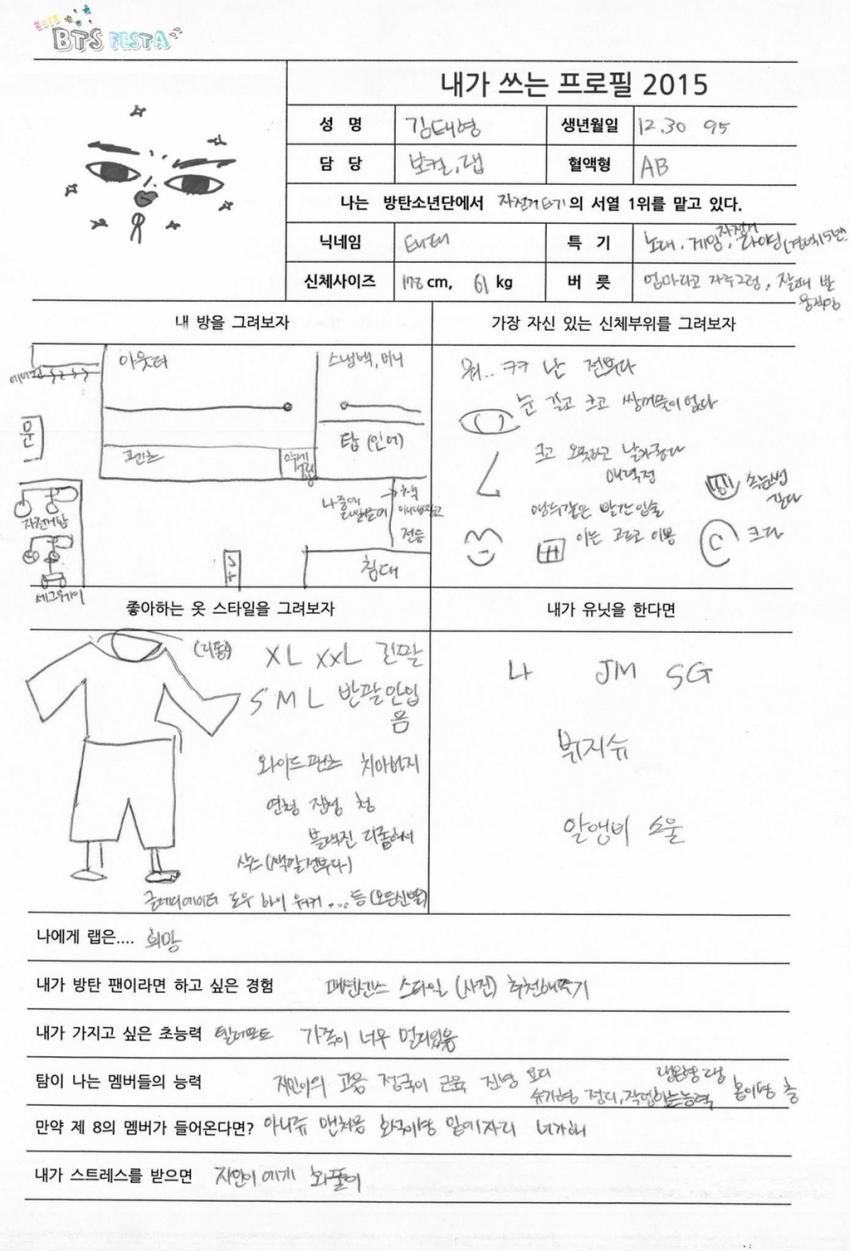 2015
BTS FESTA
내가 쓰는 프로필 2015
성 명 김태형 생년월일 12.30 95
담 당 보컬,랩 혈액형 AB
나는 방탄소년단에서 자전거타기의 서열 1위를 맡고 있다.
닉네임 태태 특 기 노래, 게임, 자전거 라이딩
신체사이즈 178 cm, 61 kg 버 릇 엄마라고 자주그럼, 잘때 발
내 방을 그려보자
아웃터
스냅백,
문
탑 (인어)
팬츠
자전거
전등
침대
세그웨이
가장 자신 있는 신체부위를 그려보자
뭐.. ㅋㅋ 난 전부다
눈 길고 크고 쌍꺼풀이 없다
크고 오똑하고 날카롭다
매력점
앵두같은 빨간입술
속눈썹
길다
이는 고르고 이쁨
크다
좋아하는 옷 스타일을 그려보자
XL XXL 긴팔
S M L 반팔안입
음
와이드팬츠
연청 진청 청
블랙진
로우 하이 워커 ...등
내가 유닛을 한다면
나 JM SG
뷔지슈
알앤비 소울
나에게 랩은.... 희망
내가 방탄 팬이라면 하고 싶은 경험 스타일 (사진) 추천해주기
내가 가지고 싶은 초능력 텔레포트 가족이 너무 멀리있음
탐이 나는 멤버들의 능력 지민이의 고음 정국이 근육 진형 요리
슈가형 정리, 작업하는능력 랩몬형 랩 홉이형 춤
만약 제 8의 멤버가 들어온다면? 아니쥬 맨처음 호석이형
내가 스트레스를 받으면 지민이에게 화풀이